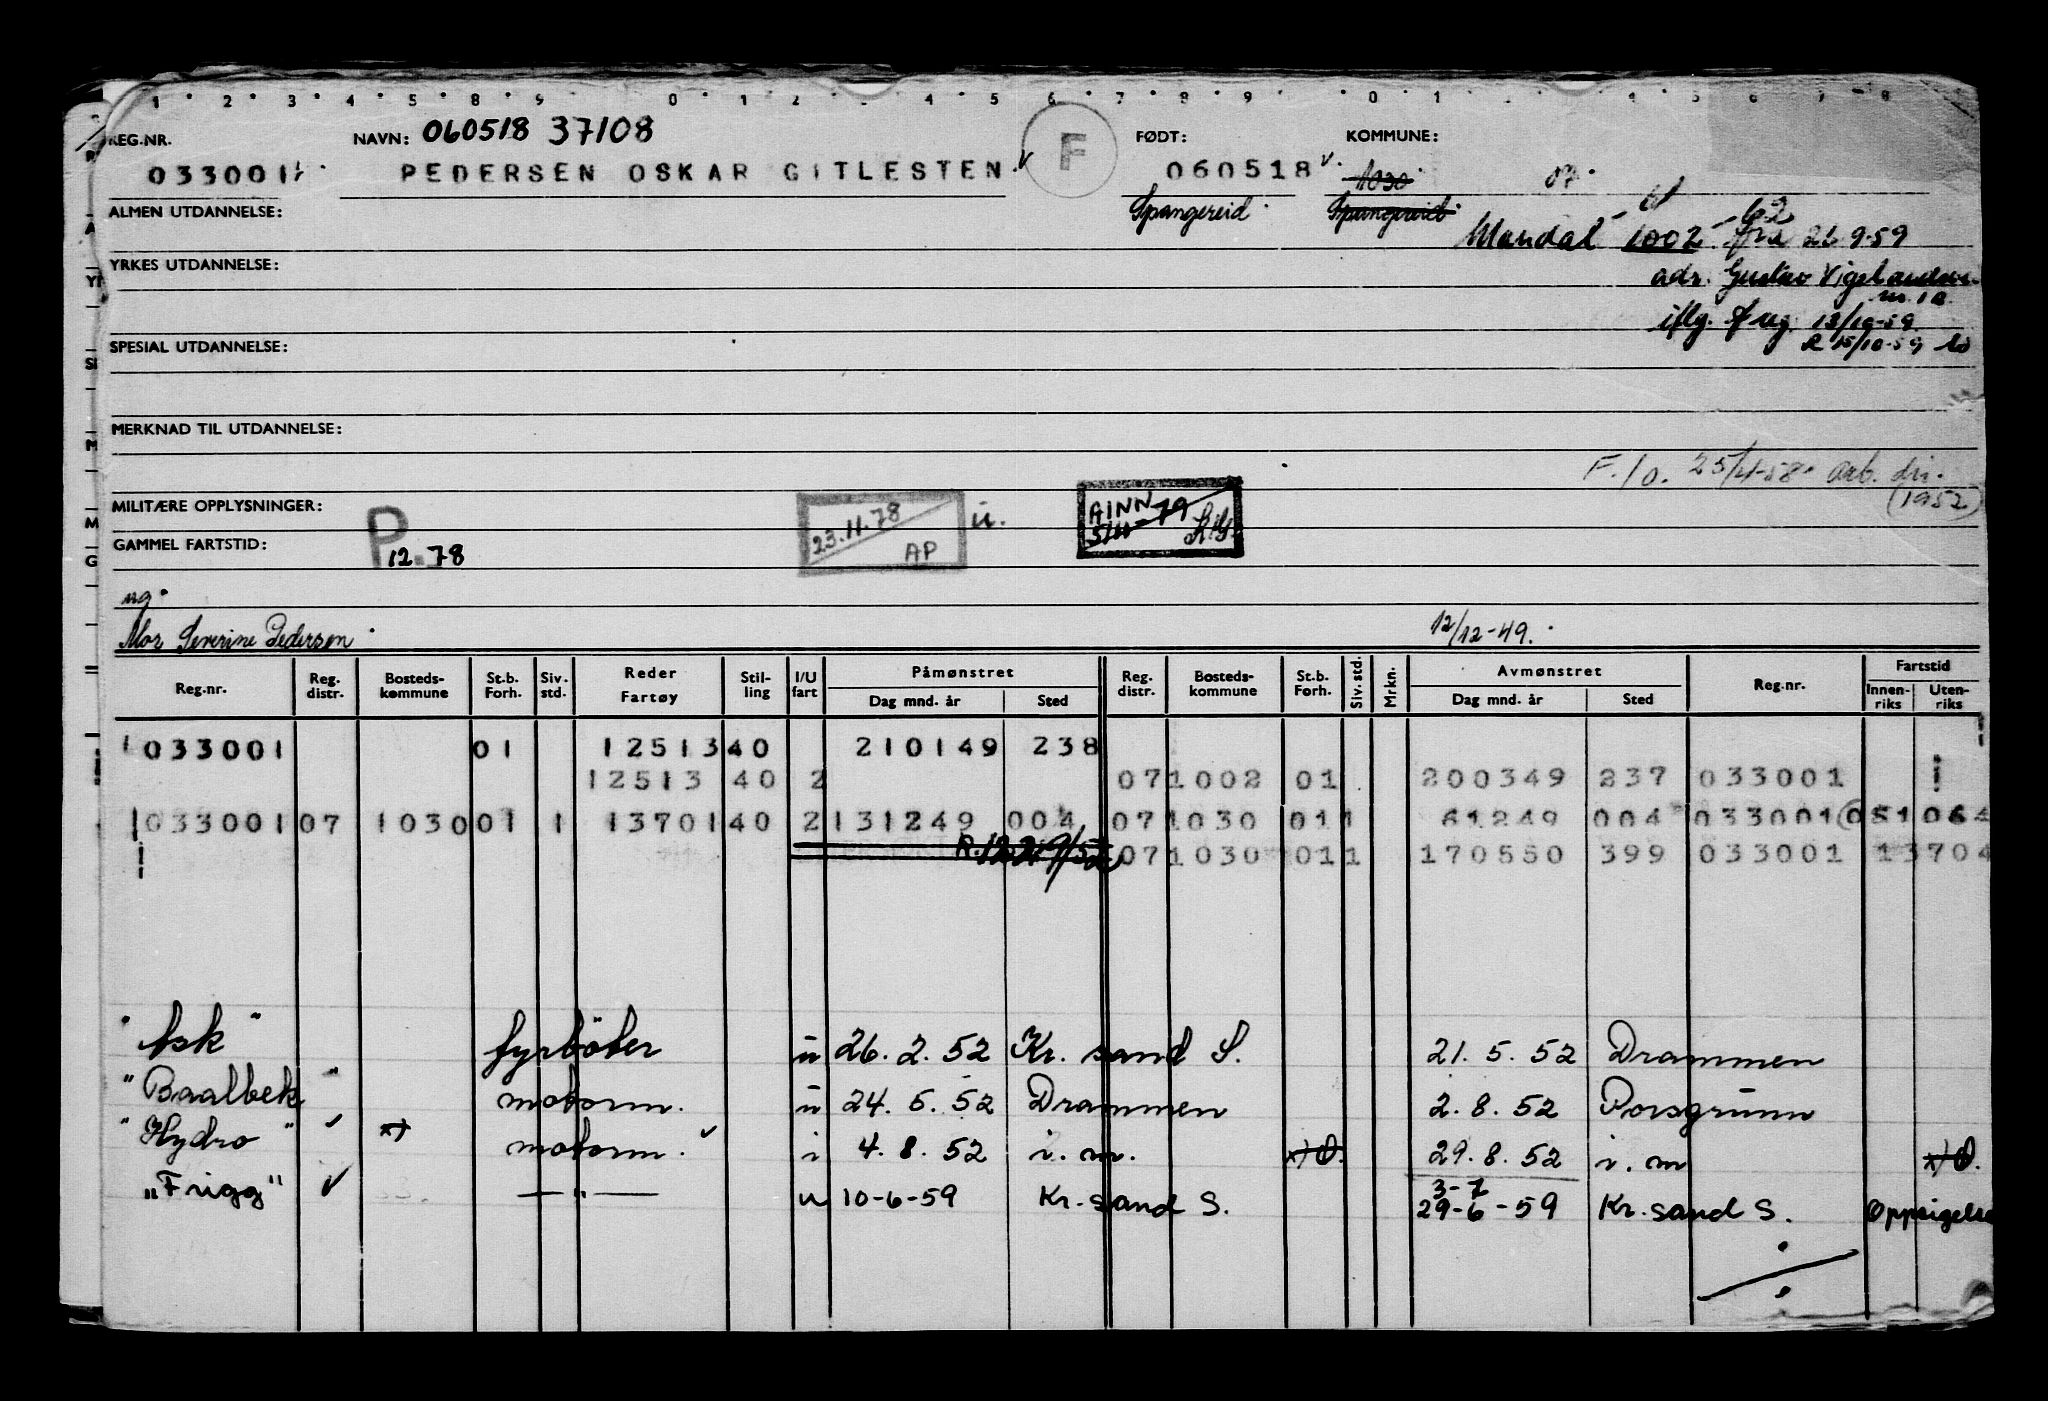 1 2 3 4 5 8 9 0 1 2 3 4 5 6 7 8 9 0 1 4 5 6 7 8
REG.NR. NAVN: 060518 37108 F FØDT: KOMMUNE:
033001 PEDERSEN OSKAR GITLESTEN 060518 1030 07
ALMEN UTDANNELSE: Spangereid Spangereid 61 62
Mandal 1002 fra 21.9.59
YRKES UTDANNELSE: adr. Gustav Vigelandsv.
nr. 1a.
iflg. 13/10-59.
SPESIAL UTDANNELSE: R 15/10-59
MERKNAD TIL UTDANNELSE:
F.lo. 25/4-58. arb. dir.
(1952)
MILITÆRE OPPLYSNINGER: P 23.11.78 u. AINN
GAMMEL FARTSTID: 12.78 AP 79
ug.
Mor Severine Pedersen. 12/12-49.
Reg.nr. Reg. distr. Bosteds-kommune St.b. Forh. Siv. std. Reder Fartøy Stil-ling I/U fart Påmønstret Dag mnd. år Sted Reg. distr. Bosteds-kommune St.b. Forh. Siv. std. Mrkn. Avmønstret Dag mnd. år Sted Reg.nr. Fartstid Innen-riks Uten-riks
033001 01 12513 40 210149 238
12513 40 2 07 1002 01 200349 237 033001
033001 07 1030 01 1 13701 40 2 131249 004 07 1030 01 1 61249 004 033001 051064
07 1030 01 1 170550 399 033001 13704
"Ask" fyrböter u 26.2.52 Kr.sand S. 21.5.52 Drammen
"Baalbek" motorm. u 24.5.52 Drammen 2.8.52 Porsgrunn
"Hydro" ✓ x) motorm. ✓ i 4.8.52 i.m. x) O. 29.8.52 i.m x) O.
3-7
"Frigg" ✓ —"— u 10-6-59 Kr.sand S. 29-6-59 Kr.sand S. Oppsigelse